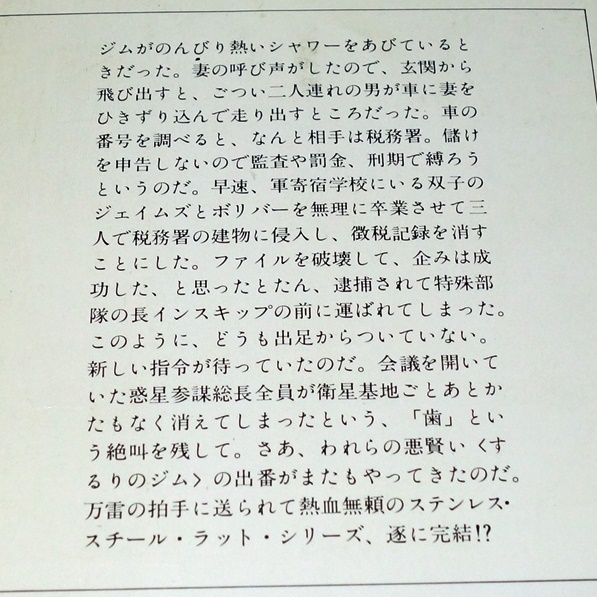 ジムがのんびり熱いシャワーをあびていると
きだった。妻の呼び声がしたので、玄関から
飛び出すと、ごつい二人連れの男が車に妻を
ひきずり込んで走り出すところだった。車の
番号を調べると、なんと相手は税務署。儲け
を申告しないので監査や罰金、刑期で縛ろう
というのだ。早速、軍寄宿学校にいる双子の
ジェイムズとボリバーを無理に卒業させて三
人で税務署の建物に侵入し、徴税記録を消す
ことにした。ファイルを破壊して、企みは成
功した、と思ったとたん、逮捕されて特殊部
隊の長インスキップの前に運ばれてしまった。
このように、どうも出足からついていない。
新しい指令が待っていたのだ。会議を開いて
いた惑星参謀総長全員が衛星基地ごとあとか
たもなく消えてしまったという、「歯」とい
う絶叫を残して。さあ、われらの悪賢い〈す
るりのジム〉の出番がまたもやってきたのだ。
万雷の拍手に送られて熱血無頼のステンレス・
スチール・ラット・シリーズ、遂に完結!?